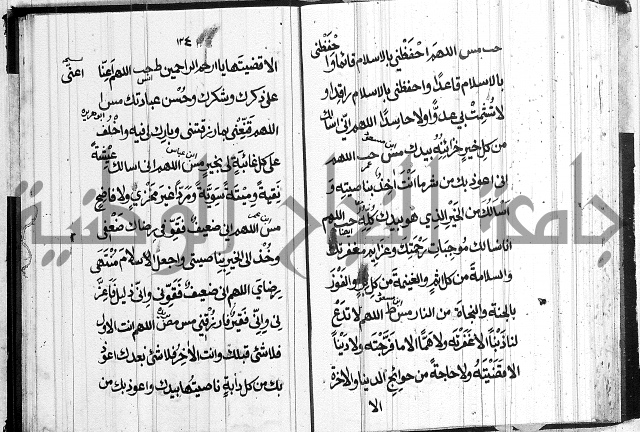 حب مس اللهم احفظني بالاسلام قائما واحفظني
بالاسلام قاعدا واحفظني بالاسلام راقدا و
لا تشمت بي عدوا ولا حاسدا اللهم اني اسالك
من كل خير خزائنه بيدك مس حب اللهم
اني اعوذ بك من شر ما انت اخذ بناصيته و
اسالك من الخير الذي هو بيدك كله حب اللهم
انا نسالك موجبات رحمتك وعزايم مغفرتك
والسلامة من كل اثم والغنيمة من كل بر والفوز
بالجنة والنجاة من النار مس ط اللهم لا تدع
لنا ذنبا الا غفرته ولا هما الا فرجته ولا دينا
الا قضيته ولا حاجة من حوائج الدنيا والاخرة
الا
١٣٤
الا قضيتها يا ارحم الراحمين ط حب اللهم اعنا
اعني
على ذكرك وشكرك وحسن عبادتك مس ا
ابو هريرة
اللهم قنعني بما رزقتني وبارك لي فيه واخلف
على كل غائبة لي بخير مس اللهم اني اسالك عيشة
ابن عباس
نقية وميتة سوية ومردا غير مخزي ولا فاضح
مس اللهم اني ضعيف فقو في رضاك ضعفي
وخذ الى الخير بناصيتي واجعل الاسلام منتهى
رضاي اللهم اني ضعيف فقوني واني ذليل فاعز
ني واني فقير فارزقني مس مص اللهم انت الاول
فلا شئ قبلك وانت الاخر فلا شئ بعدك اعوذ
بك من كل دابة ناصيتها بيدك واعوذ بك من
جامعة النجاح الوطنية